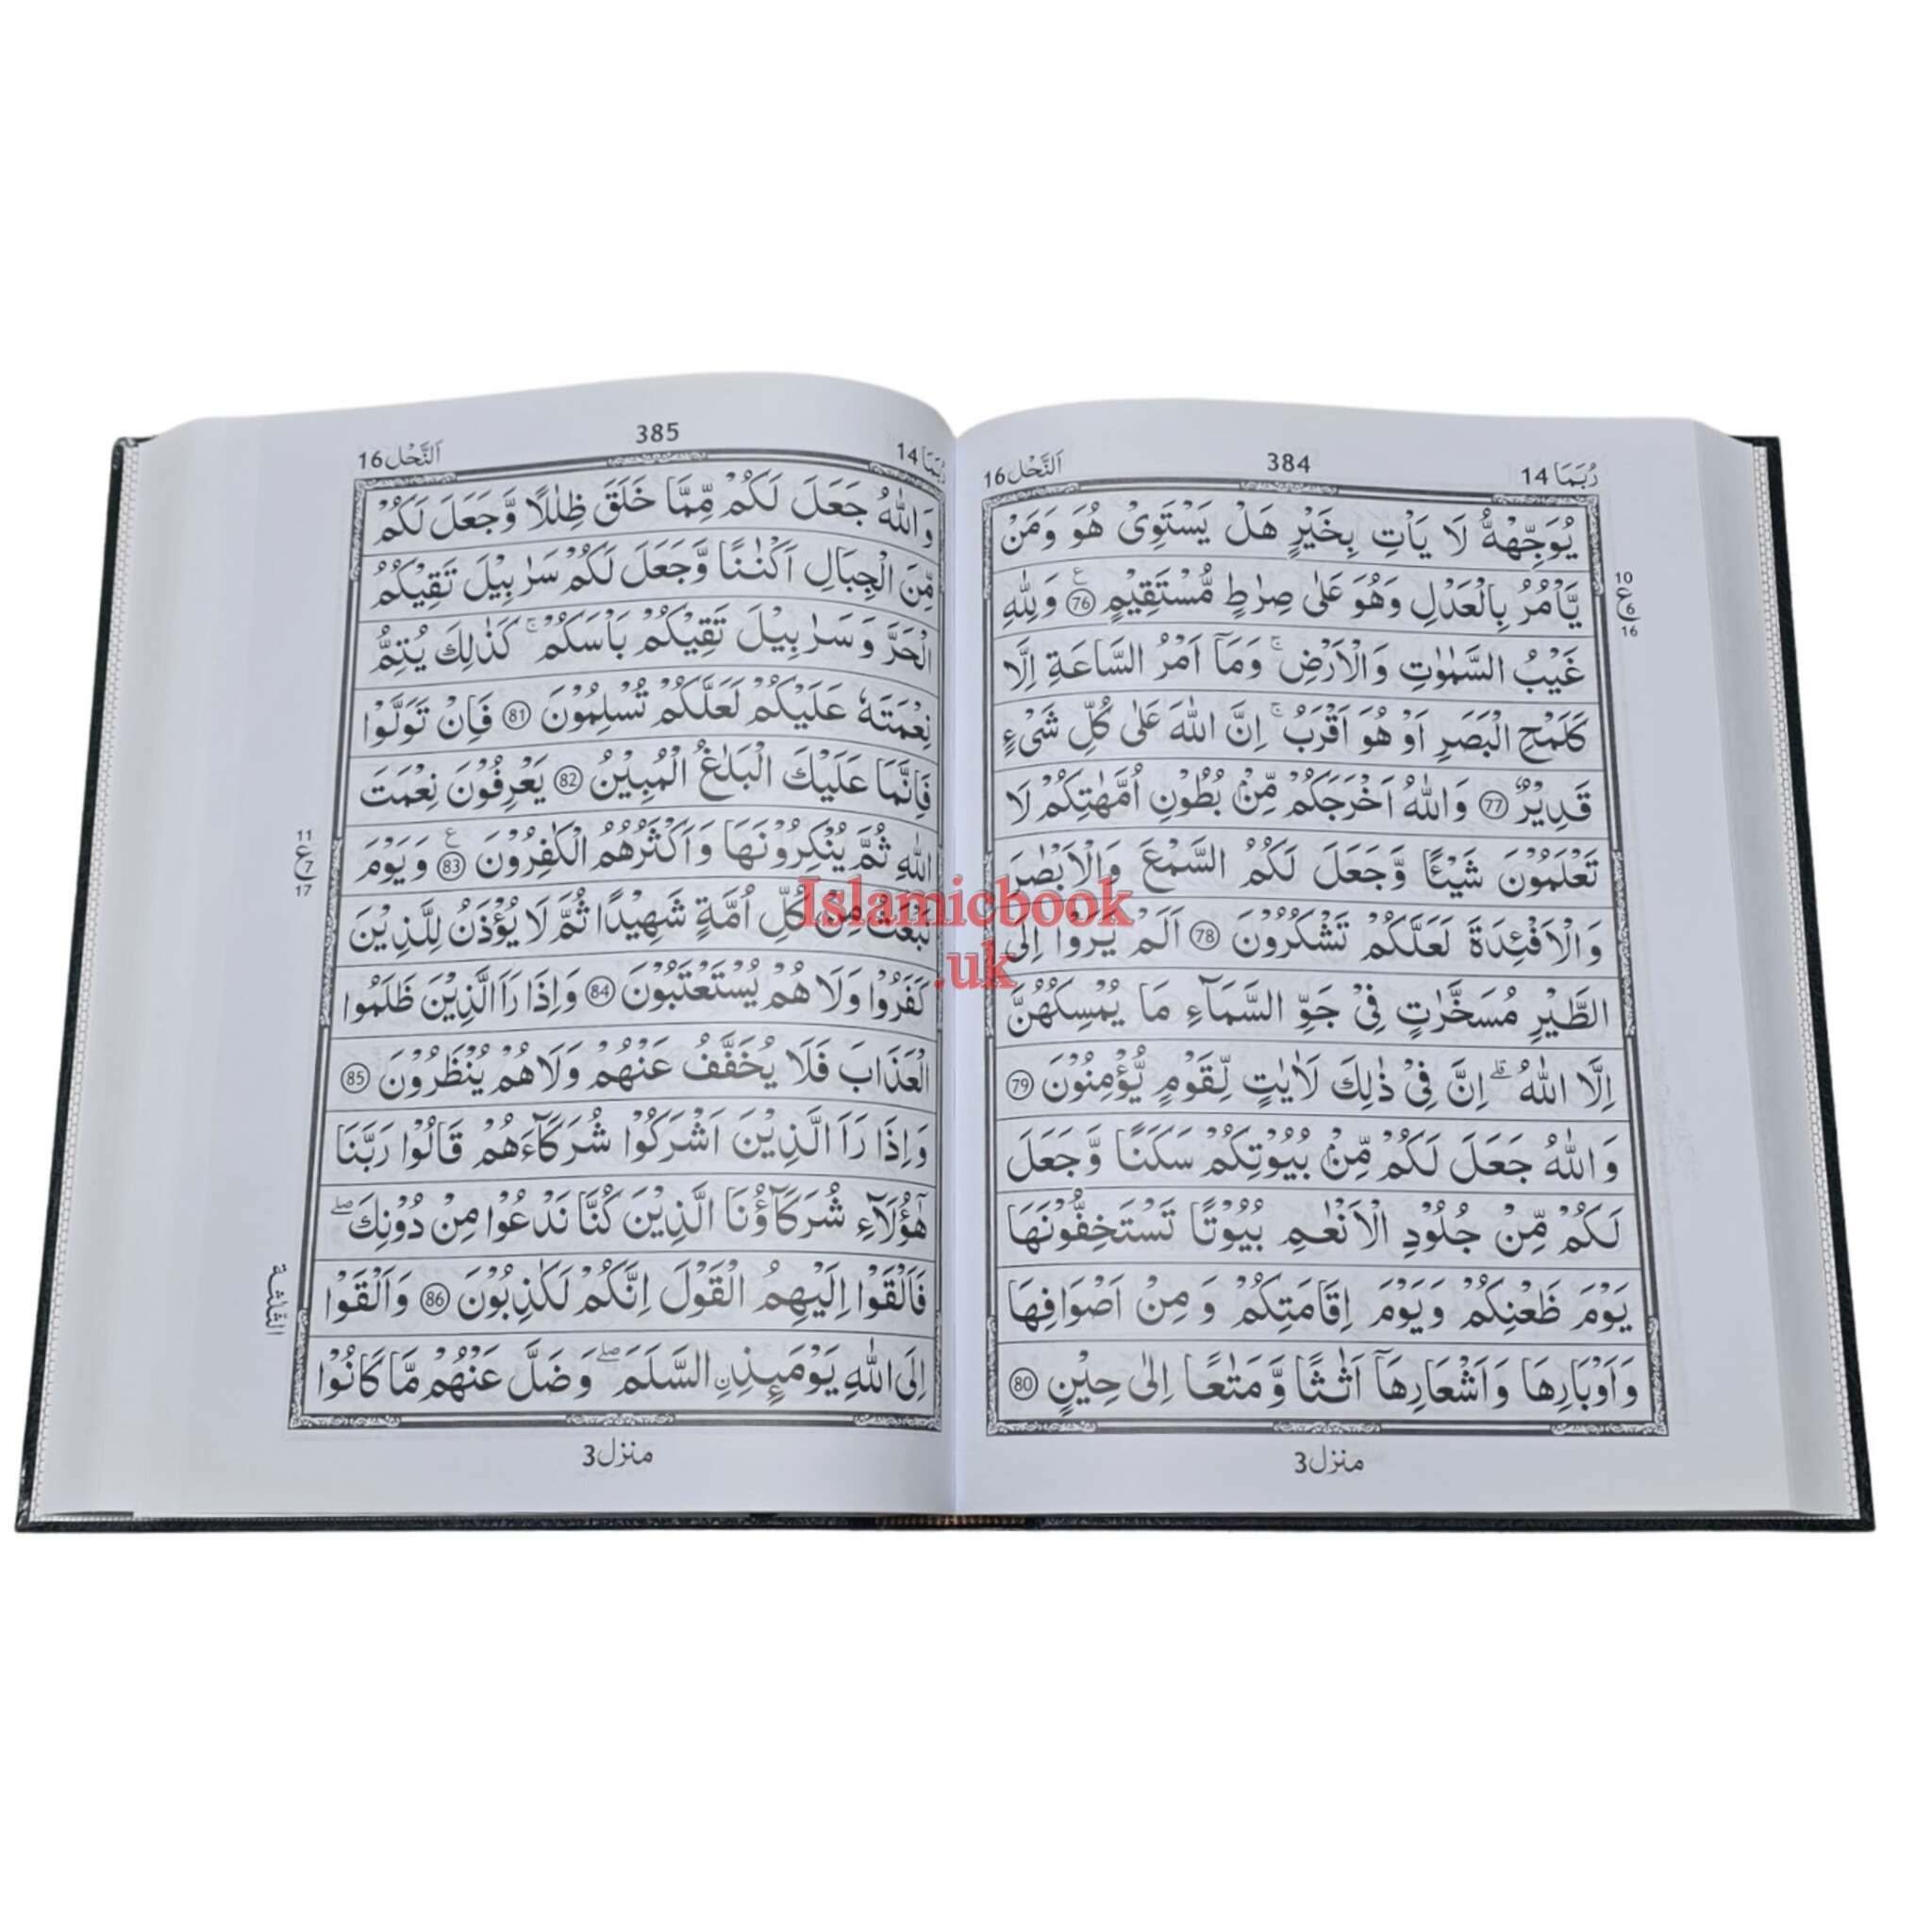 رُبَمَا 14
384
اَلنَّحْل 16
يُوَجِّهْهُّ لَا يَاْتِ بِخَيْرٍ هَلْ يَسْتَوِيْ هُوَ وَمَنْ
يَّاْمُرُ بِالْعَدْلِ وَهُوَ عَلٰى صِرٰطٍ مُّسْتَقِيْمٍ ۧ 76 وَلِلّٰهِ
غَيْبُ السَّمٰوٰتِ وَالْاَرْضِ ۚ وَمَآ اَمْرُ السَّاعَةِ اِلَّا
كَلَمْحِ الْبَصَرِ اَوْ هُوَ اَقْرَبُ ۚ اِنَّ اللّٰهَ عَلٰى كُلِّ شَيْءٍ
قَدِيْرٌ 77 وَاللّٰهُ اَخْرَجَكُمْ مِّنْۢ بُطُوْنِ اُمَّهٰتِكُمْ لَا
تَعْلَمُوْنَ شَيْـًٔا وَّجَعَلَ لَكُمُ السَّمْعَ وَالْاَبْصٰرَ
وَالْاَفْئِدَةَ لَعَلَّكُمْ تَشْكُرُوْنَ 78 اَلَمْ يَرَوْا اِلَى
الطَّيْرِ مُسَخَّرٰتٍ فِيْ جَوِّ السَّمَآءِ مَا يُمْسِكُهُنَّ
اِلَّا اللّٰهُ ۗ اِنَّ فِيْ ذٰلِكَ لَاٰيٰتٍ لِّقَوْمٍ يُّؤْمِنُوْنَ 79
وَاللّٰهُ جَعَلَ لَكُمْ مِّنْۢ بُيُوْتِكُمْ سَكَنًا وَّجَعَلَ
لَكُمْ مِّنْ جُلُوْدِ الْاَنْعٰمِ بُيُوْتًا تَسْتَخِفُّوْنَهَا
يَوْمَ ظَعْنِكُمْ وَيَوْمَ اِقَامَتِكُمْ وَمِنْ اَصْوَافِهَا
وَاَوْبَارِهَا وَاَشْعَارِهَآ اَثٰثًا وَّمَتٰعًا اِلٰى حِيْنٍ 80
منزل 3
10
ع 6
16
رُبَمَا 14
385
اَلنَّحْل 16
وَاللّٰهُ جَعَلَ لَكُمْ مِّمَّا خَلَقَ ظِلٰلًا وَّجَعَلَ لَكُمْ
مِّنَ الْجِبَالِ اَكْنٰنًا وَّجَعَلَ لَكُمْ سَرٰبِيْلَ تَقِيْكُمُ
الْحَرَّ وَسَرٰبِيْلَ تَقِيْكُمْ بَاْسَكُمْ ۚ كَذٰلِكَ يُتِمُّ
نِعْمَتَهٗ عَلَيْكُمْ لَعَلَّكُمْ تُسْلِمُوْنَ 81 فَاِنْ تَوَلَّوْا
فَاِنَّمَا عَلَيْكَ الْبَلٰغُ الْمُبِيْنُ 82 يَعْرِفُوْنَ نِعْمَتَ
اللّٰهِ ثُمَّ يُنْكِرُوْنَهَا وَاَكْثَرُهُمُ الْكٰفِرُوْنَ ۧ 83 وَيَوْمَ
نَبْعَثُ مِنْ كُلِّ اُمَّةٍ شَهِيْدًا ثُمَّ لَا يُؤْذَنُ لِلَّذِيْنَ
كَفَرُوْا وَلَا هُمْ يُسْتَعْتَبُوْنَ 84 وَاِذَا رَاَ الَّذِيْنَ ظَلَمُوا
الْعَذَابَ فَلَا يُخَفَّفُ عَنْهُمْ وَلَا هُمْ يُنْظَرُوْنَ 85
وَاِذَا رَاَ الَّذِيْنَ اَشْرَكُوْا شُرَكَآءَهُمْ قَالُوْا رَبَّنَا
هٰٓؤُلَآءِ شُرَكَآؤُنَا الَّذِيْنَ كُنَّا نَدْعُوْا مِنْ دُوْنِكَ ۖ
فَاَلْقَوْا اِلَيْهِمُ الْقَوْلَ اِنَّكُمْ لَكٰذِبُوْنَ 86 وَاَلْقَوْا
اِلَى اللّٰهِ يَوْمَئِذِ ِۨالسَّلَمَ ۖ وَضَلَّ عَنْهُمْ مَّا كَانُوْا
منزل 3
11
ع 7
17
الثلثة
Islamicbook
.uk